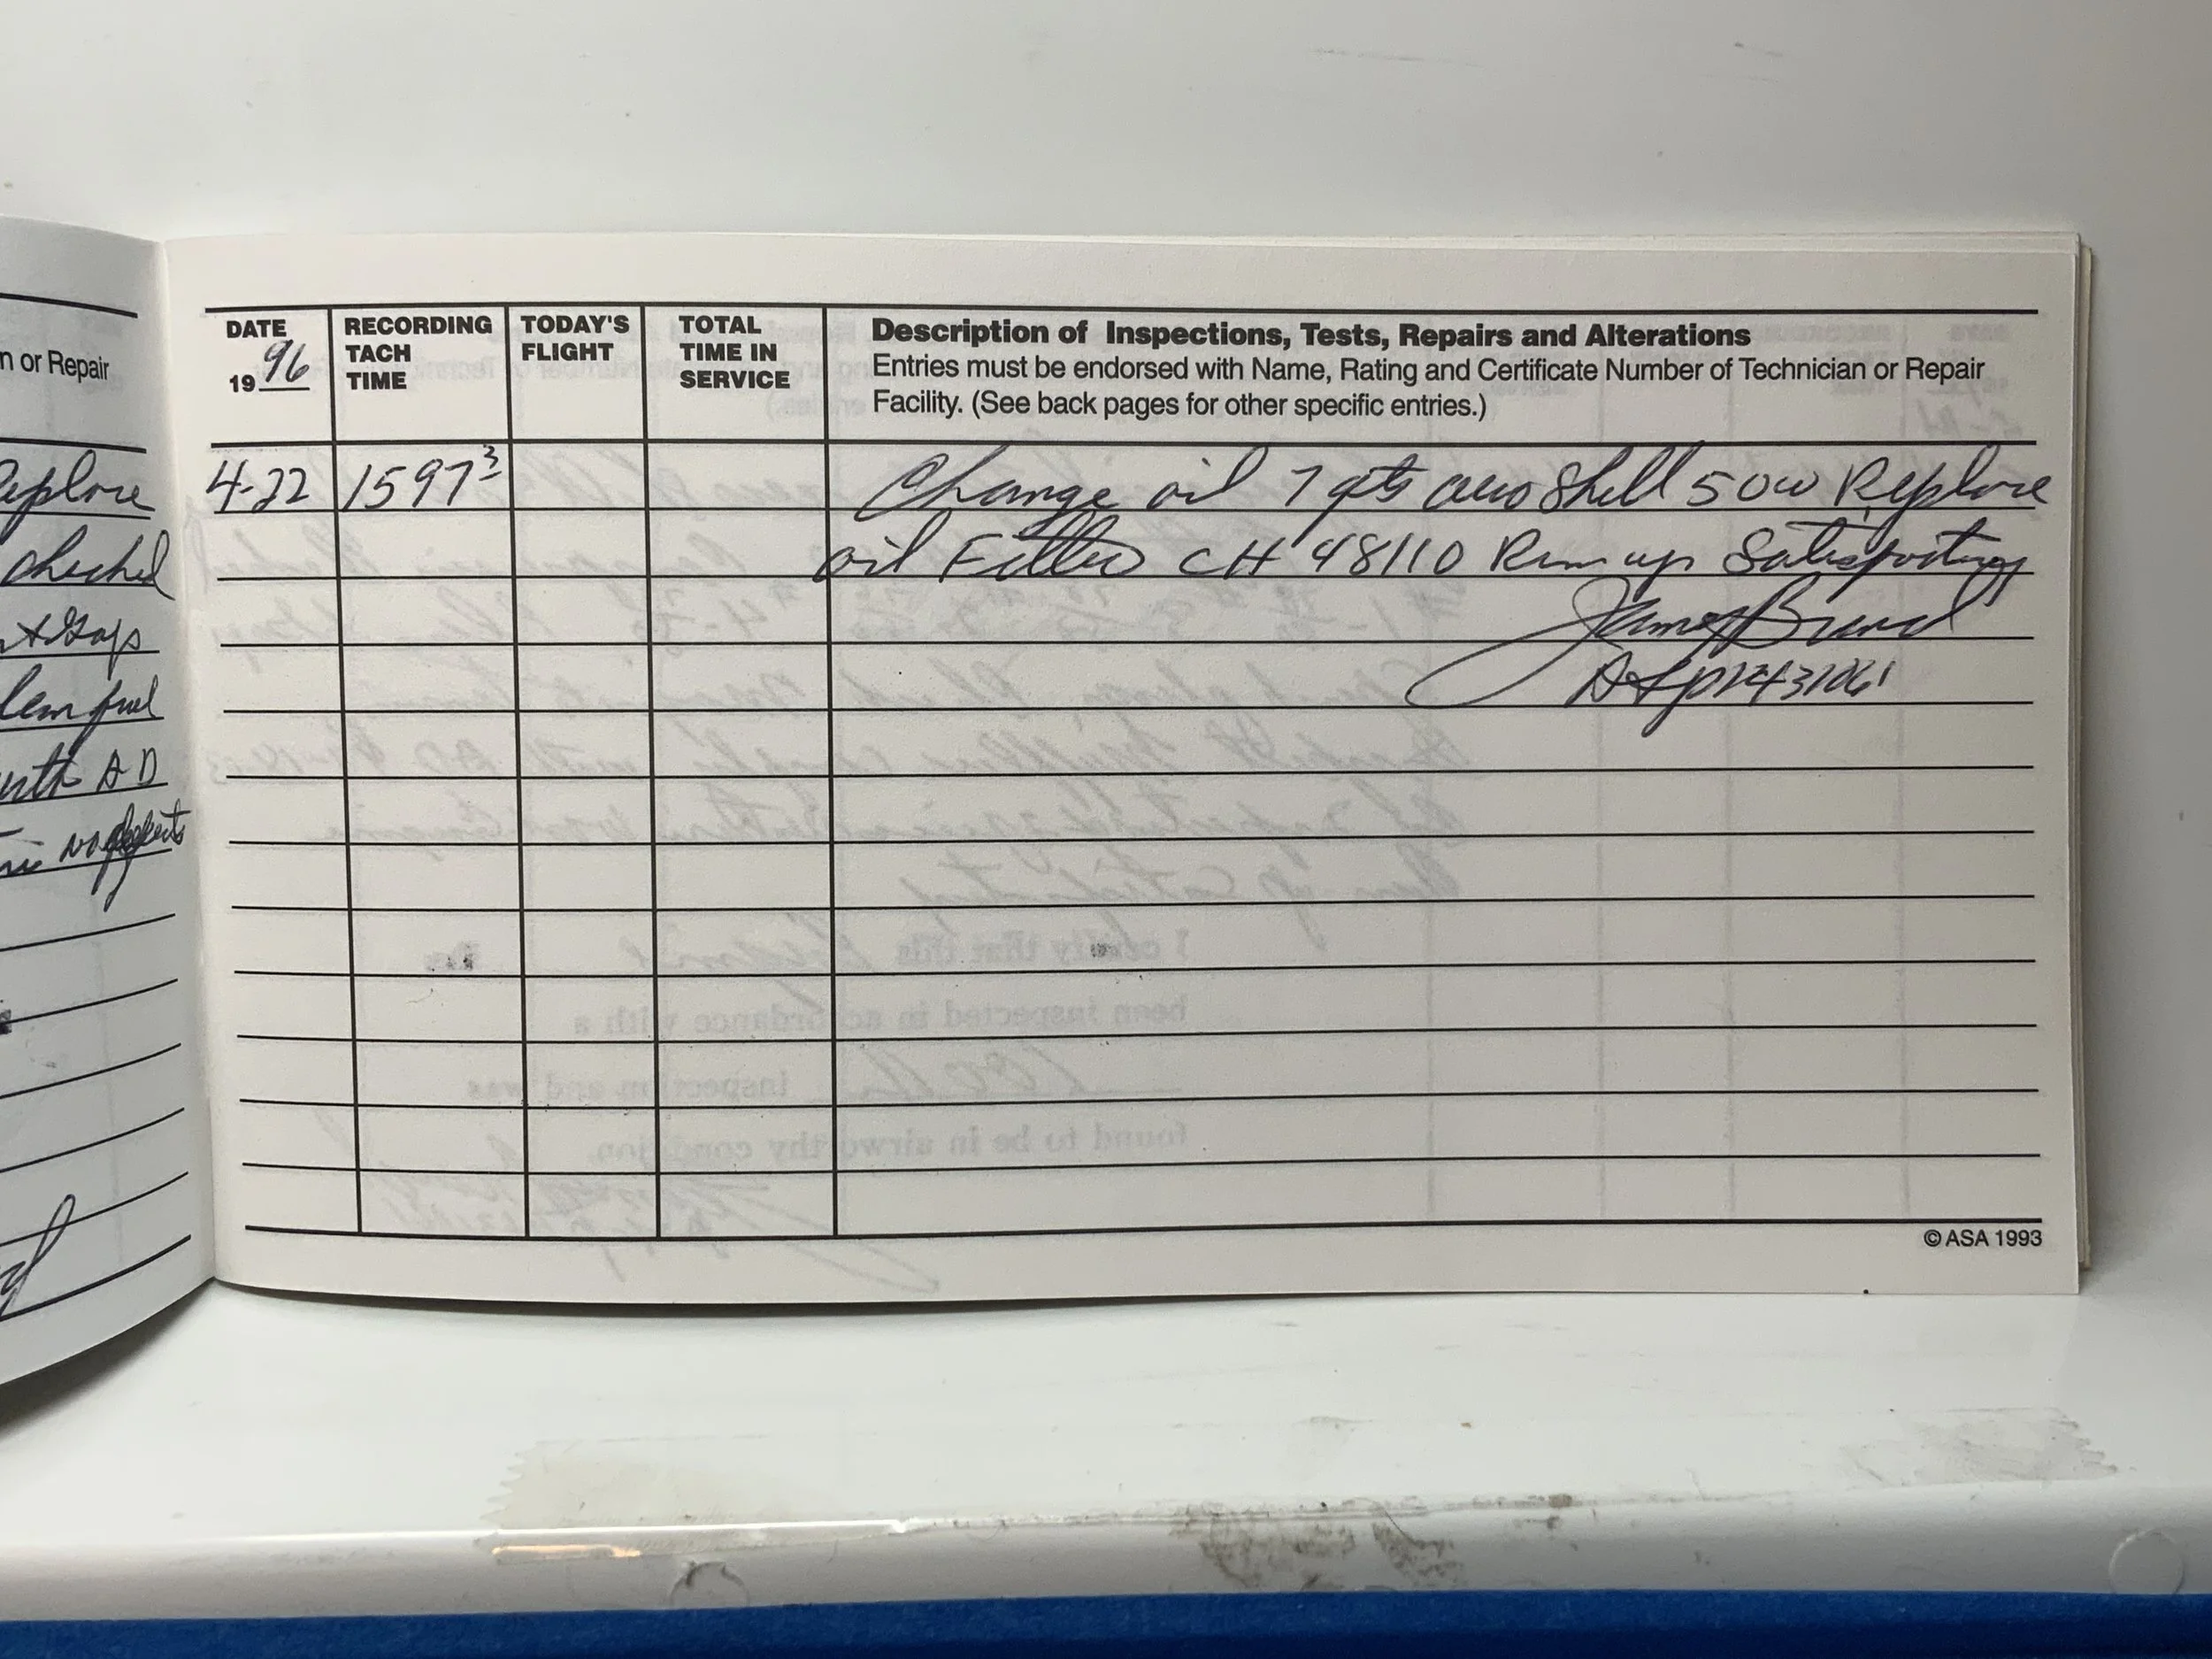 n or Repair
Replace
checked
& Gaps
clean fuel
with AD
no defects
DATE
19 96
RECORDING
TACH
TIME
TODAY'S
FLIGHT
TOTAL
TIME IN
SERVICE
Description of Inspections, Tests, Repairs and Alterations
Entries must be endorsed with Name, Rating and Certificate Number of Technician or Repair
Facility. (See back pages for other specific entries.)
4-22 1597³ Change oil 7 qts aeroshell 50w Replace
oil Filter CH 48110 Run up Satisfactory
James
A&P
© ASA 1993